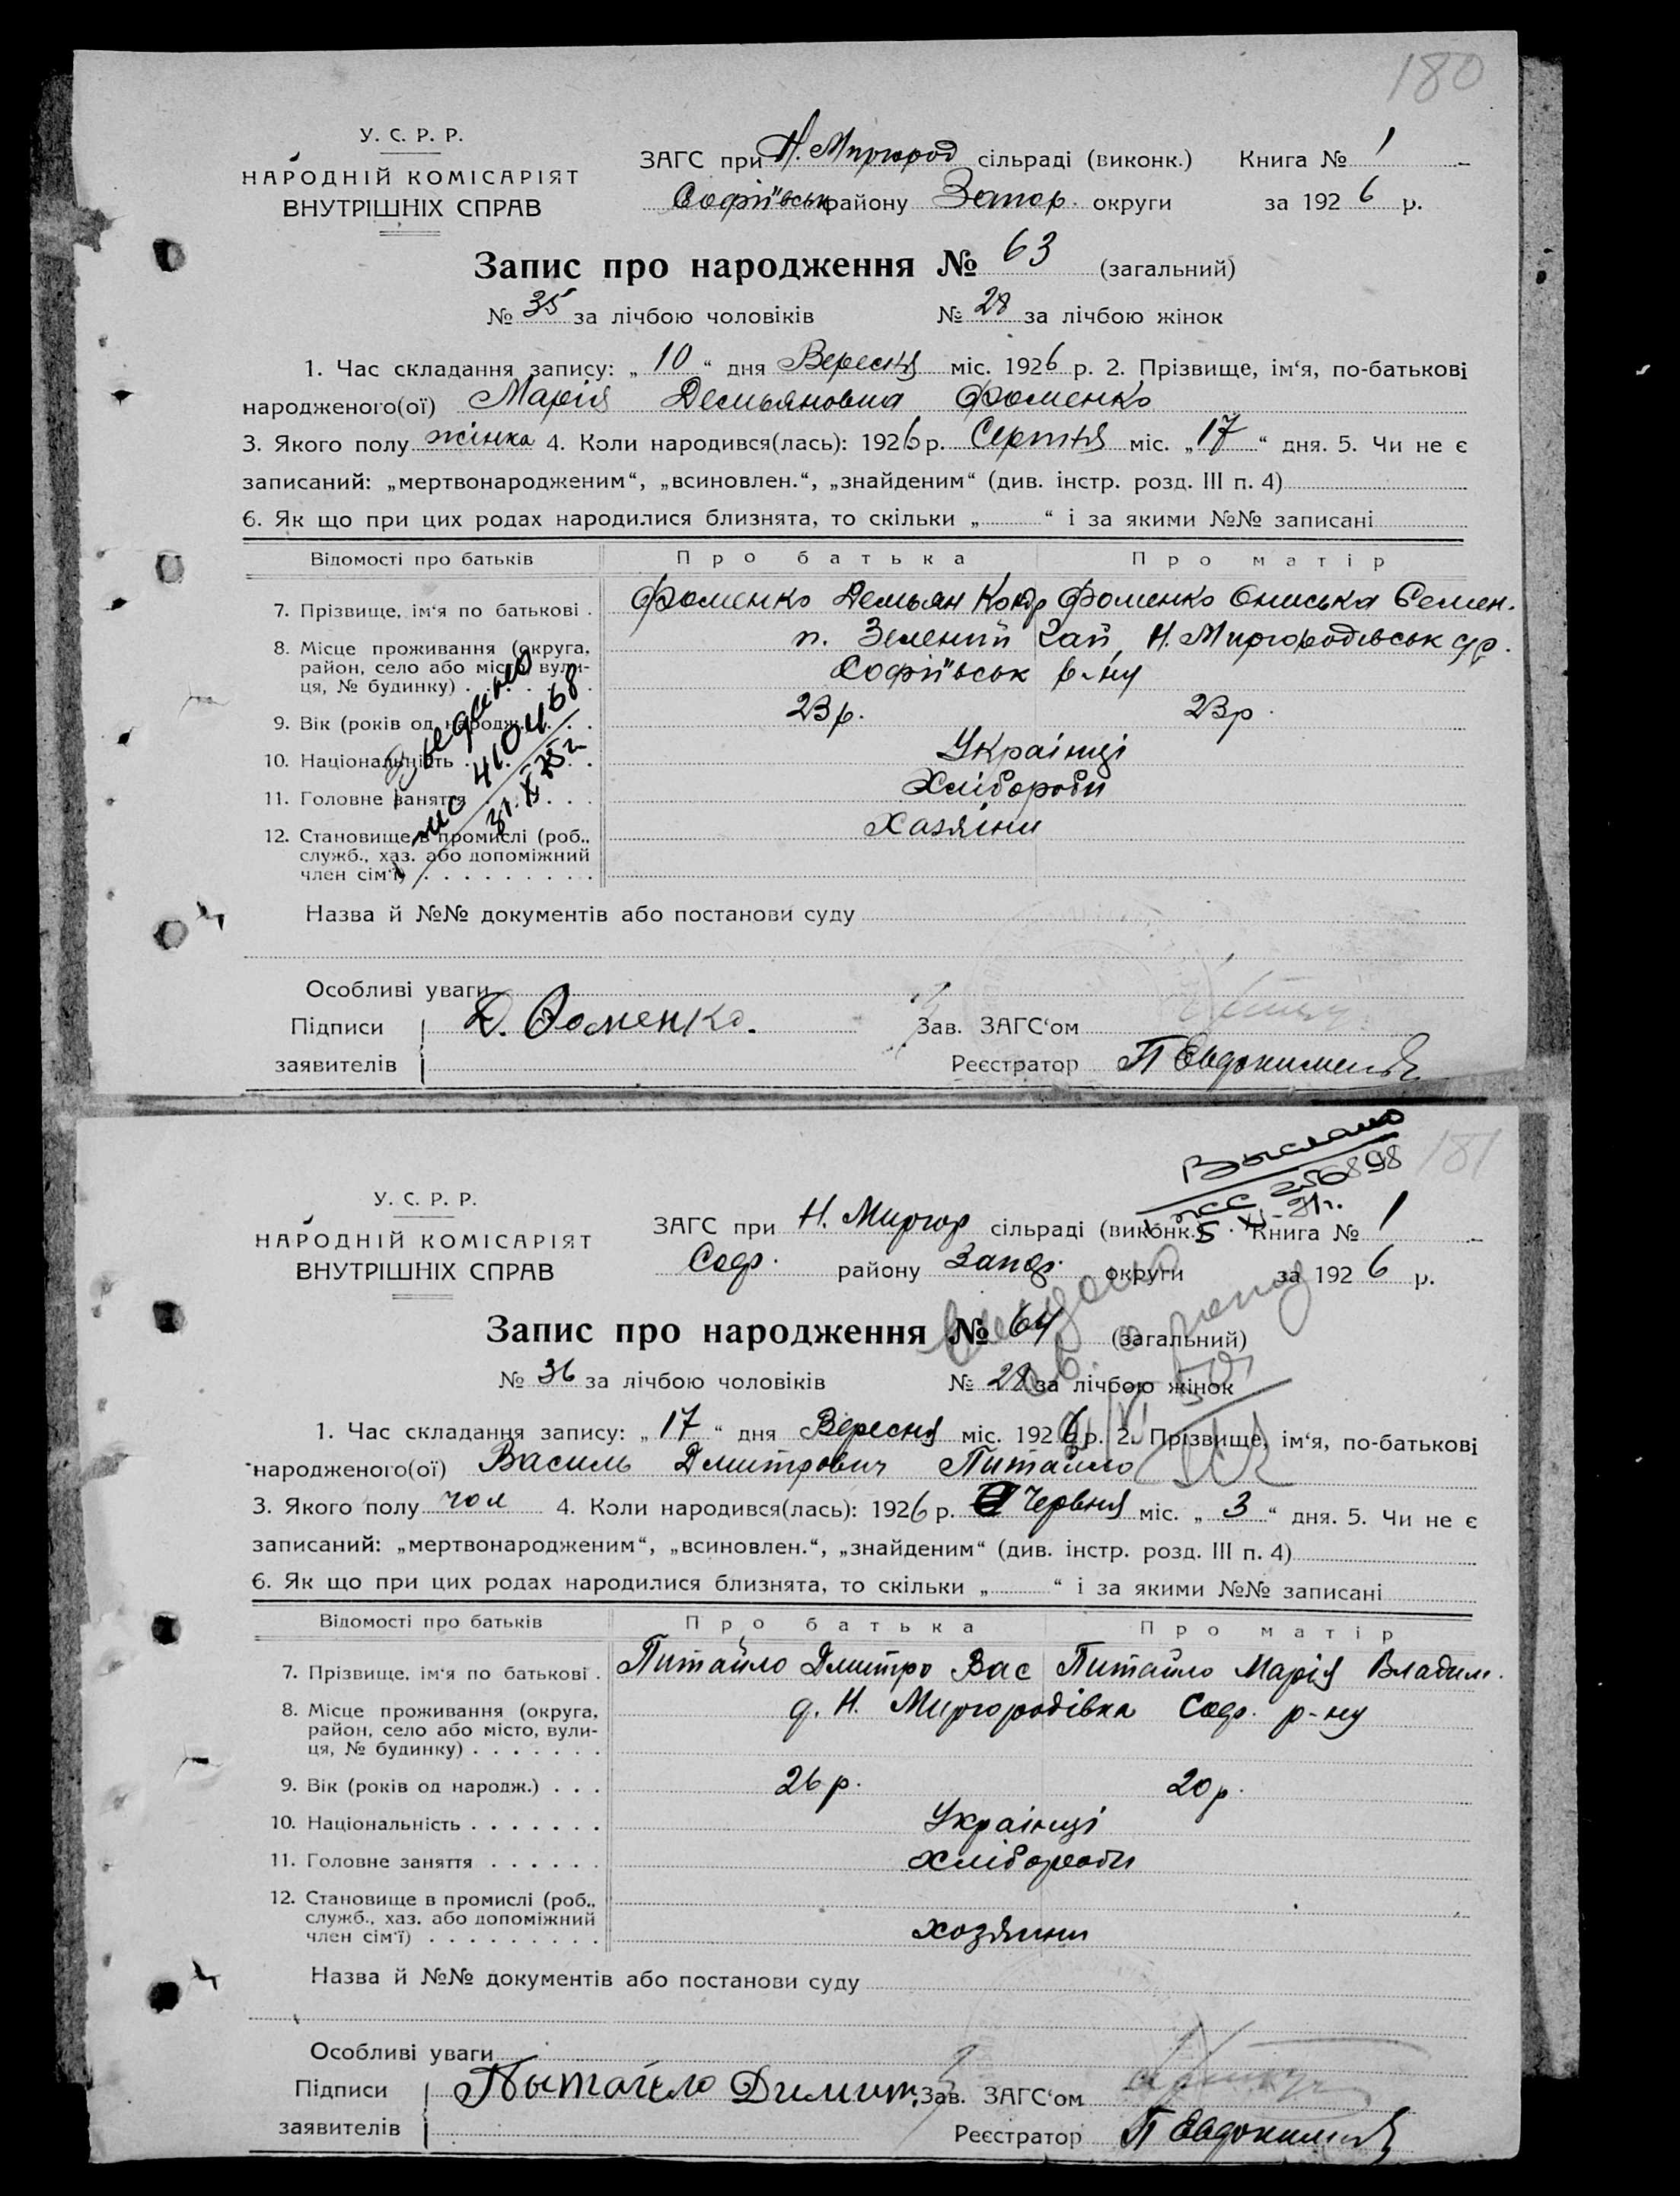 180
У. С. Р. Р.
НАРОДНІЙ КОМІСАРІЯТ
ВНУТРІШНІХ СПРАВ
ЗАГС при Н. Миргород сільраді (виконк.) Книга № 1
Софіївськ району Запор. округи за 192 6 р.
Запис про народження № 63 (загальний)
№ 35 за лічбою чоловіків № 28 за лічбою жінок
1. Час складання запису: „ 10 “ дня Вересня міс. 1926 р. 2. Прізвище, ім‘я, по-батькові
народженого(ої) Марія Демьяновна Фоменко
3. Якого полу жінка 4. Коли народився(лась): 1926 р. Серпня міс. „ 17 “ дня. 5. Чи не є
записаний: „мертвонародженим“, „всиновлен.“, „знайденим“ (див. інстр. розд. III п. 4)
6. Як що при цих родах народилися близнята, то скільки „ “ і за якими №№ записані
Відомості про батьків Про батька Про матір
7. Прізвище, ім‘я по батькові . Фоменко Демьян Фоменко Ониська Семен.
8. Місце проживання (округа, п. Зелений Гай, Н. Миргородівськ
район, село або місто, вули- Софіївськ р-ну
ця, № будинку)
9. Вік (років од народж.) 23 р. 23 р.
10. Національність Українці
11. Головне заняття Хлібороби
12. Становище в промислі (роб., Хазяїни
служб., хаз. або допоміжний
член сім‘ї)
410468
Назва й №№ документів або постанови суду
Особливі уваги
Підписи Д. Фоменко. Зав. ЗАГС‘ом
заявителів Реєстратор П Євдокименко
Выслано
181
У. С. Р. Р.
НАРОДНІЙ КОМІСАРІЯТ
ВНУТРІШНІХ СПРАВ
ЗАГС при Н. Миргор сільраді (виконк.) Книга № 1
Соф. району Запор. округи за 192 6 р.
Запис про народження № 64 (загальний)
№ 36 за лічбою чоловіків № 28 за лічбою жінок
1. Час складання запису: „ 17 “ дня Вересня міс. 1926 р. 2. Прізвище, ім‘я, по-батькові
народженого(ої) Василь Дмитрович Питайло
3. Якого полу чол 4. Коли народився(лась): 1926 р. Червня міс. „ 3 “ дня. 5. Чи не є
записаний: „мертвонародженим“, „всиновлен.“, „знайденим“ (див. інстр. розд. III п. 4)
6. Як що при цих родах народилися близнята, то скільки „ “ і за якими №№ записані
Відомості про батьків Про батька Про матір
7. Прізвище, ім‘я по батькові . Питайло Дмитро Вас Питайло Марія Владим.
8. Місце проживання (округа, д. Н. Миргородівка Соф. р-ну
район, село або місто, вули-
ця, № будинку)
9. Вік (років од народж.) 26 р. 20 р.
10. Національність Українці
11. Головне заняття хлібороби
12. Становище в промислі (роб.,
служб., хаз. або допоміжний хозяини
член сім‘ї)
Назва й №№ документів або постанови суду
Особливі уваги
Підписи Пытайло Димит. Зав. ЗАГС‘ом
заявителів Реєстратор П Євдокименко